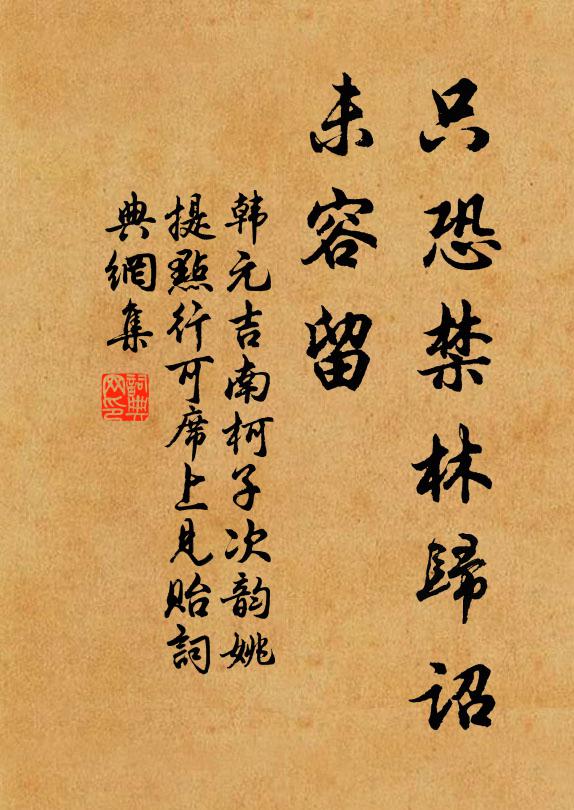 只恐禁林歸詔
未容留
韩元吉南柯子次韵姚
提點行可席上見貽詞
典網集
詞典
网印